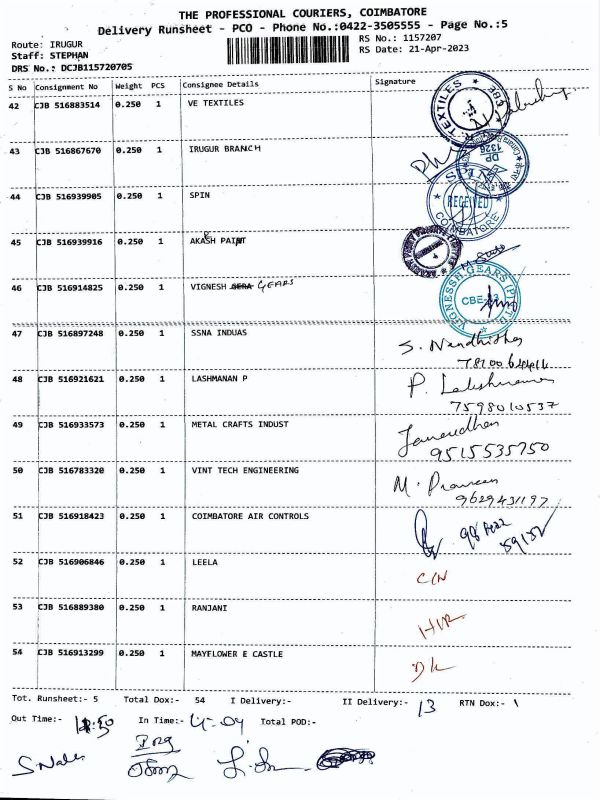 THE PROFESSIONAL COURIERS, COIMBATORE
Delivery Runsheet - PCO - Phone No.:0422-3505555 - Page No.:5
Route: IRUGUR
Staff: STEPHAN
DRS No.: DCJB115720705
RS No.: 1157207
RS Date: 21-Apr-2023
S No Consignment No Weight PCS Consignee Details Signature
42 CJB 516883514 0.250 1 VE TEXTILES
43 CJB 516867670 0.250 1 IRUGUR BRANCH
DP 1326
44 CJB 516939905 0.250 1 SPIN
SPIN RECEIVED COIMBATORE
45 CJB 516939916 0.250 1 AKASH PAINT
46 CJB 516914825 0.250 1 VIGNESH GERA GEARS
VIGNESSH GEARS (P) LTD
47 CJB 516897248 0.250 1 SSNA INDUAS S. Nandhitha
48 CJB 516921621 0.250 1 LASHMANAN P P. Lakshmanan
7598010537
49 CJB 516933573 0.250 1 METAL CRAFTS INDUST Janardhan
9515535750
50 CJB 516783320 0.250 1 VINT TECH ENGINEERING M. Praveen
9629431197
51 CJB 516918423 0.250 1 COIMBATORE AIR CONTROLS
52 CJB 516906846 0.250 1 LEELA C/N
53 CJB 516889380 0.250 1 RANJANI
54 CJB 516913299 0.250 1 MAYFLOWER E CASTLE DL
Tot. Runsheet:- 5 Total Dox:- 54 I Delivery:- II Delivery:- 13 RTN Dox:- \
Out Time:- In Time:- 4-04 Total POD:-